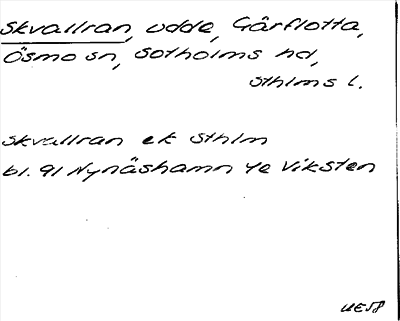 Skvallran, udde, Gårflotta,
Ösmo sn, Sotholms hd,
Sthlms l.
Skvallran ek Sthlm
bl. 91 Nynäshamn 4e Viksten
UE58